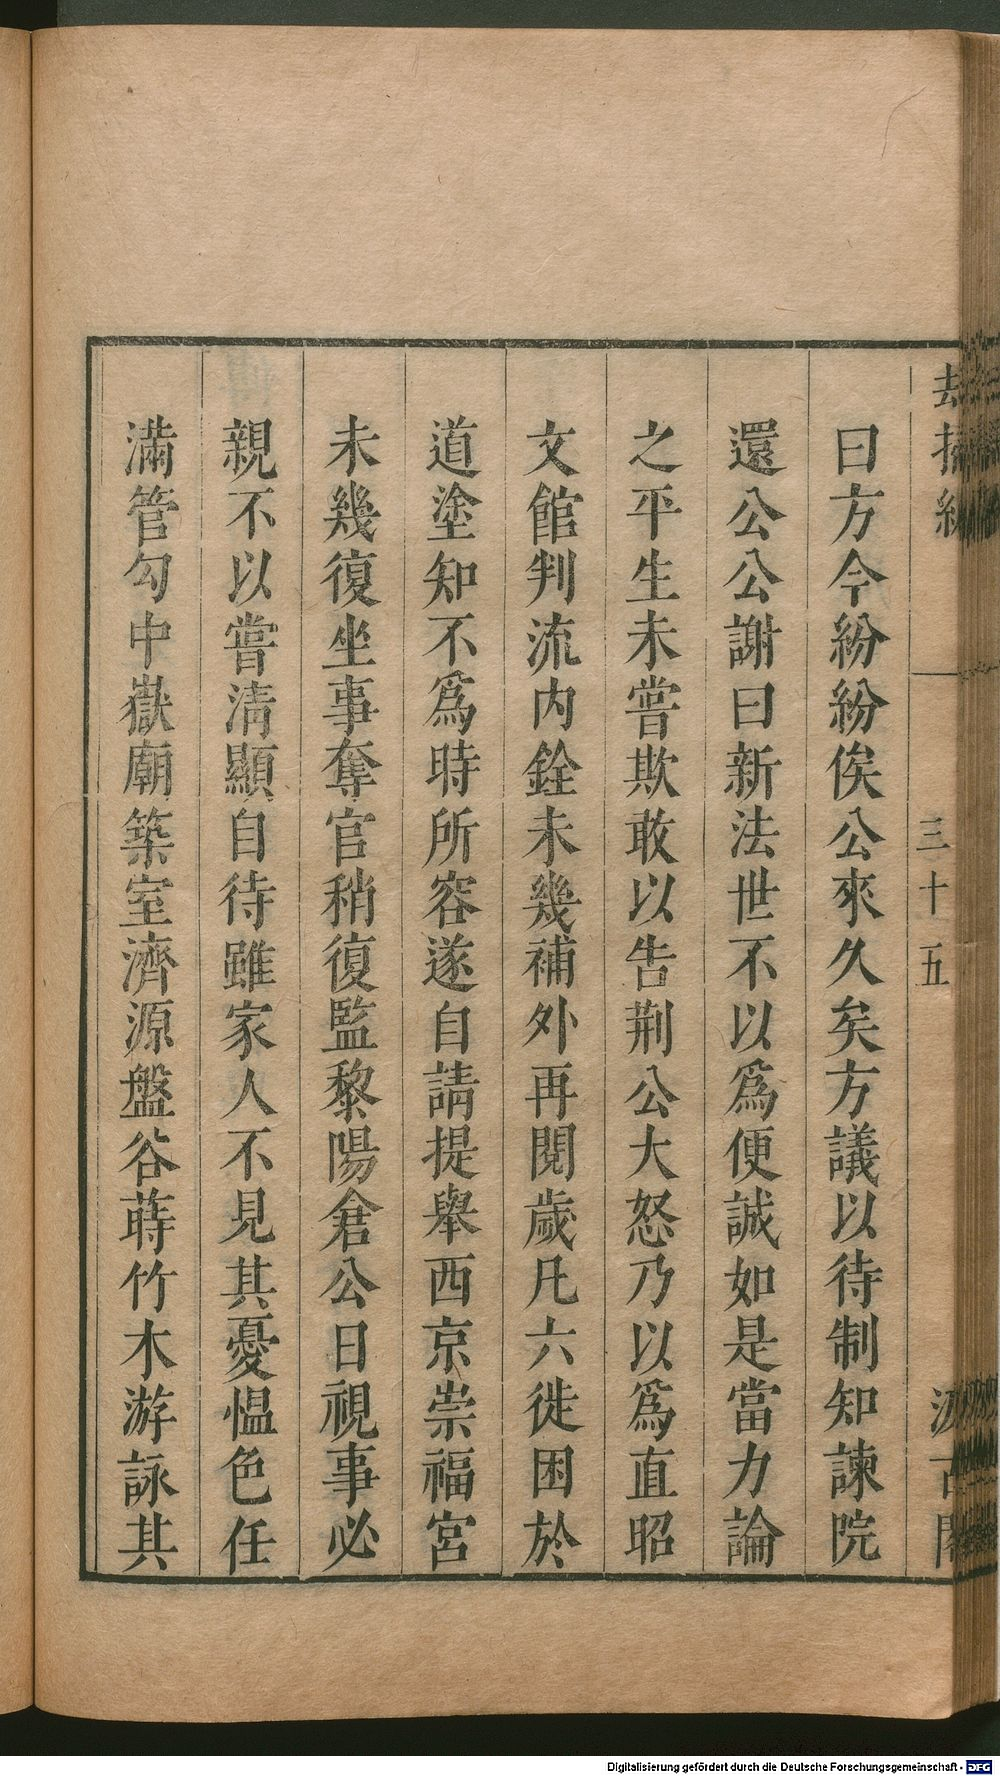 曰方今紛紛俟公來久矣方議以待制知諫院
還公公謝曰新法世不以爲便誠如是當力論
之平生未嘗欺敢以告荆公大怒乃以爲直昭
文館判流内銓未幾補外再閱歲凡六徙困於
道塗知不爲時所容遂自請提舉西京崇福宮
未幾復坐事奪官稍復監黎陽倉公日視事必
親不以嘗淸顯自待雖家人不見其憂愠色任
滿管勾中嶽廟築室濟源盤谷蒔竹木游詠其
三十五
Digitalisierung gefördert durch die Deutsche Forschungsgemeinschaft - DFG